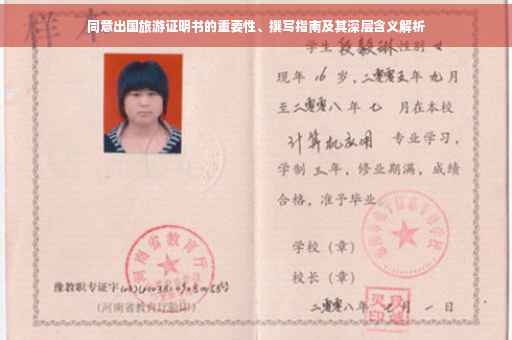 同意出国旅游证明书的重要性、撰写指南及其深层含义解析
样本
学生段毅琳性别女
现年16岁，二零零五年九月
至二零零八年七月在本校
计算机应用 专业学习，
学制三年，修业期满，成绩
合格，准予毕业。
学校（章）
校长（章）
二零零八年七月一日
河南省教育厅
豫教职专证字
（河南省教育厅验印）